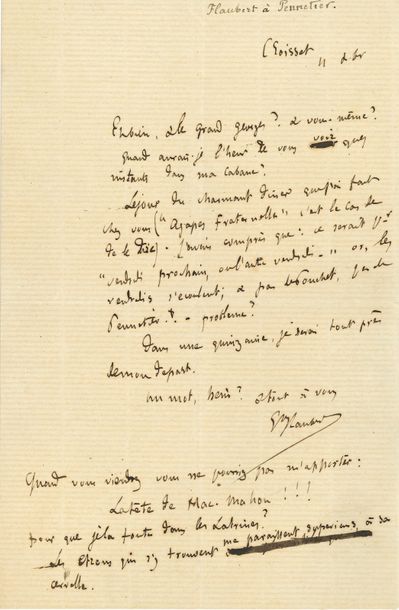 Flaubert à Pennetier.
Croisset
11 d. br
Eh bien, & le grand georges? & vous-même?
quand aurai-je l'heur de vous voir ques
instants dans ma cabane?
Le jour du charmant diner que j'ai fait
chez vous ("agapes fraternelles" c'est le cas de
de le dire) - j'avais compris que: ce serait pr
"vendredi prochain, ou l'autre vendredi -" or, les
vendredis s'écoulent; & pas de Pouchet, pas de
Pennetier! - problème?
Dans une quinzaine, je serai tout près
de mon départ.
un mot, hein? & tout à vous
Gve Flaubert
Quand vous viendrez vous ne pourriez pas m'apporter:
La tête de Mac-Mahon!!!
pour que je la foute dans les Latrines?
Les étrons qui s'y trouvent me paraissent supérieurs, à sa
cervelle.